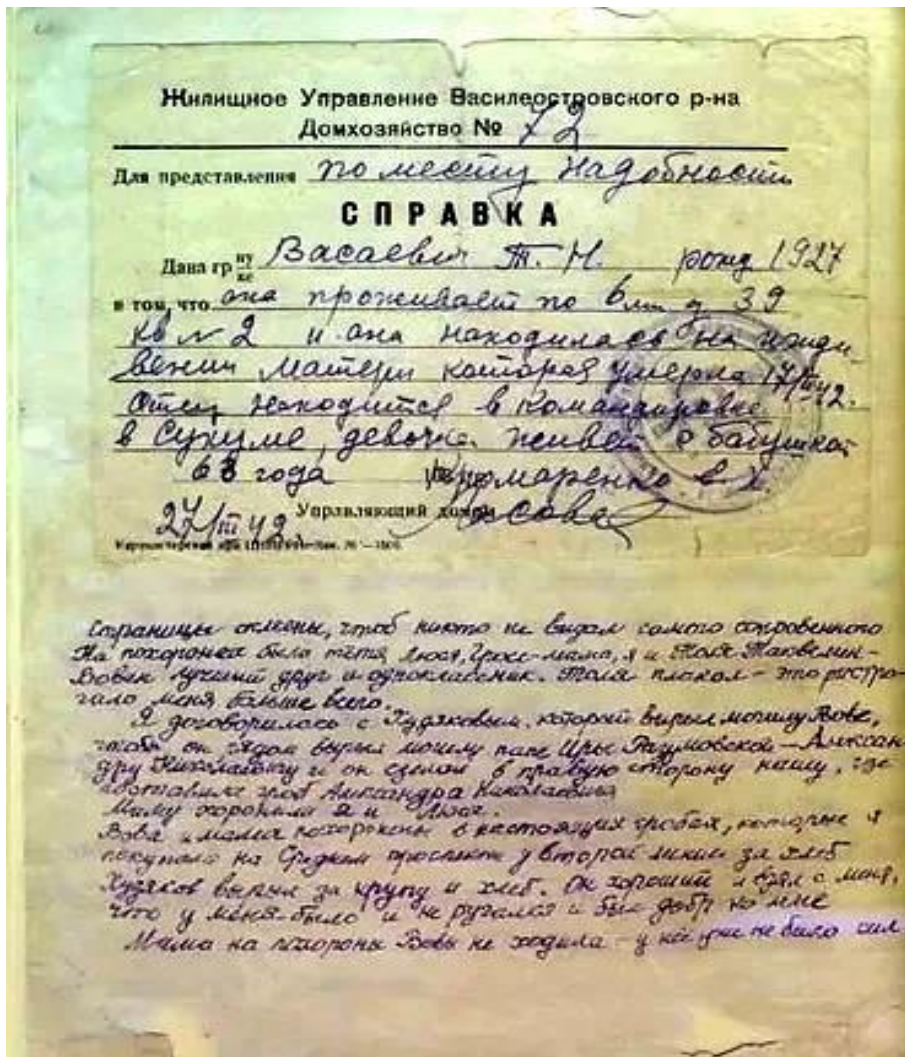 Жилищное Управление Василеостровского р-на
Домхозяйство № 72
Для представления по месту надобности
СПРАВКА
Дана гр ну ке Васаевич Т. Н. рожд 1927
в том, что она проживает по 6 лин д 39
кв № 2 и она находилась на ижди-
вении матери которая умерла 17/III 42.
Отец находится в командировке
в Сухуме, девочка живет с бабушкой
68 года
27/III 42 Управляющий домом
Страницы склеены, чтоб никто не видал самого сокровенного
На похоронах были тётя Люся, Грокс-мама, я и Толя Таквелин-
Вовин лучший друг и одноклассник. Толя плакал - это растро-
гало меня больше всего.
Я договорилась с Худяковым, который вырыл могилу Вове,
чтобы он рядом вырыл могилу папе Иры Разумовской - Алексан
дру Николаевичу и он сделал в правую сторону нишу, где
поставили гроб Александра Николаевича
Маму хоронили я и Люся.
Вова и мама похоронены в настоящих гробах, которые я
покупала на Среднем проспекте у второй линии за хлеб
Худяков вырыл за крупу и хлеб. Он хороший и взял с меня,
что у меня было и не ругался и был добр ко мне
Мама на похороны Вовы не ходила - у неё уже не было сил